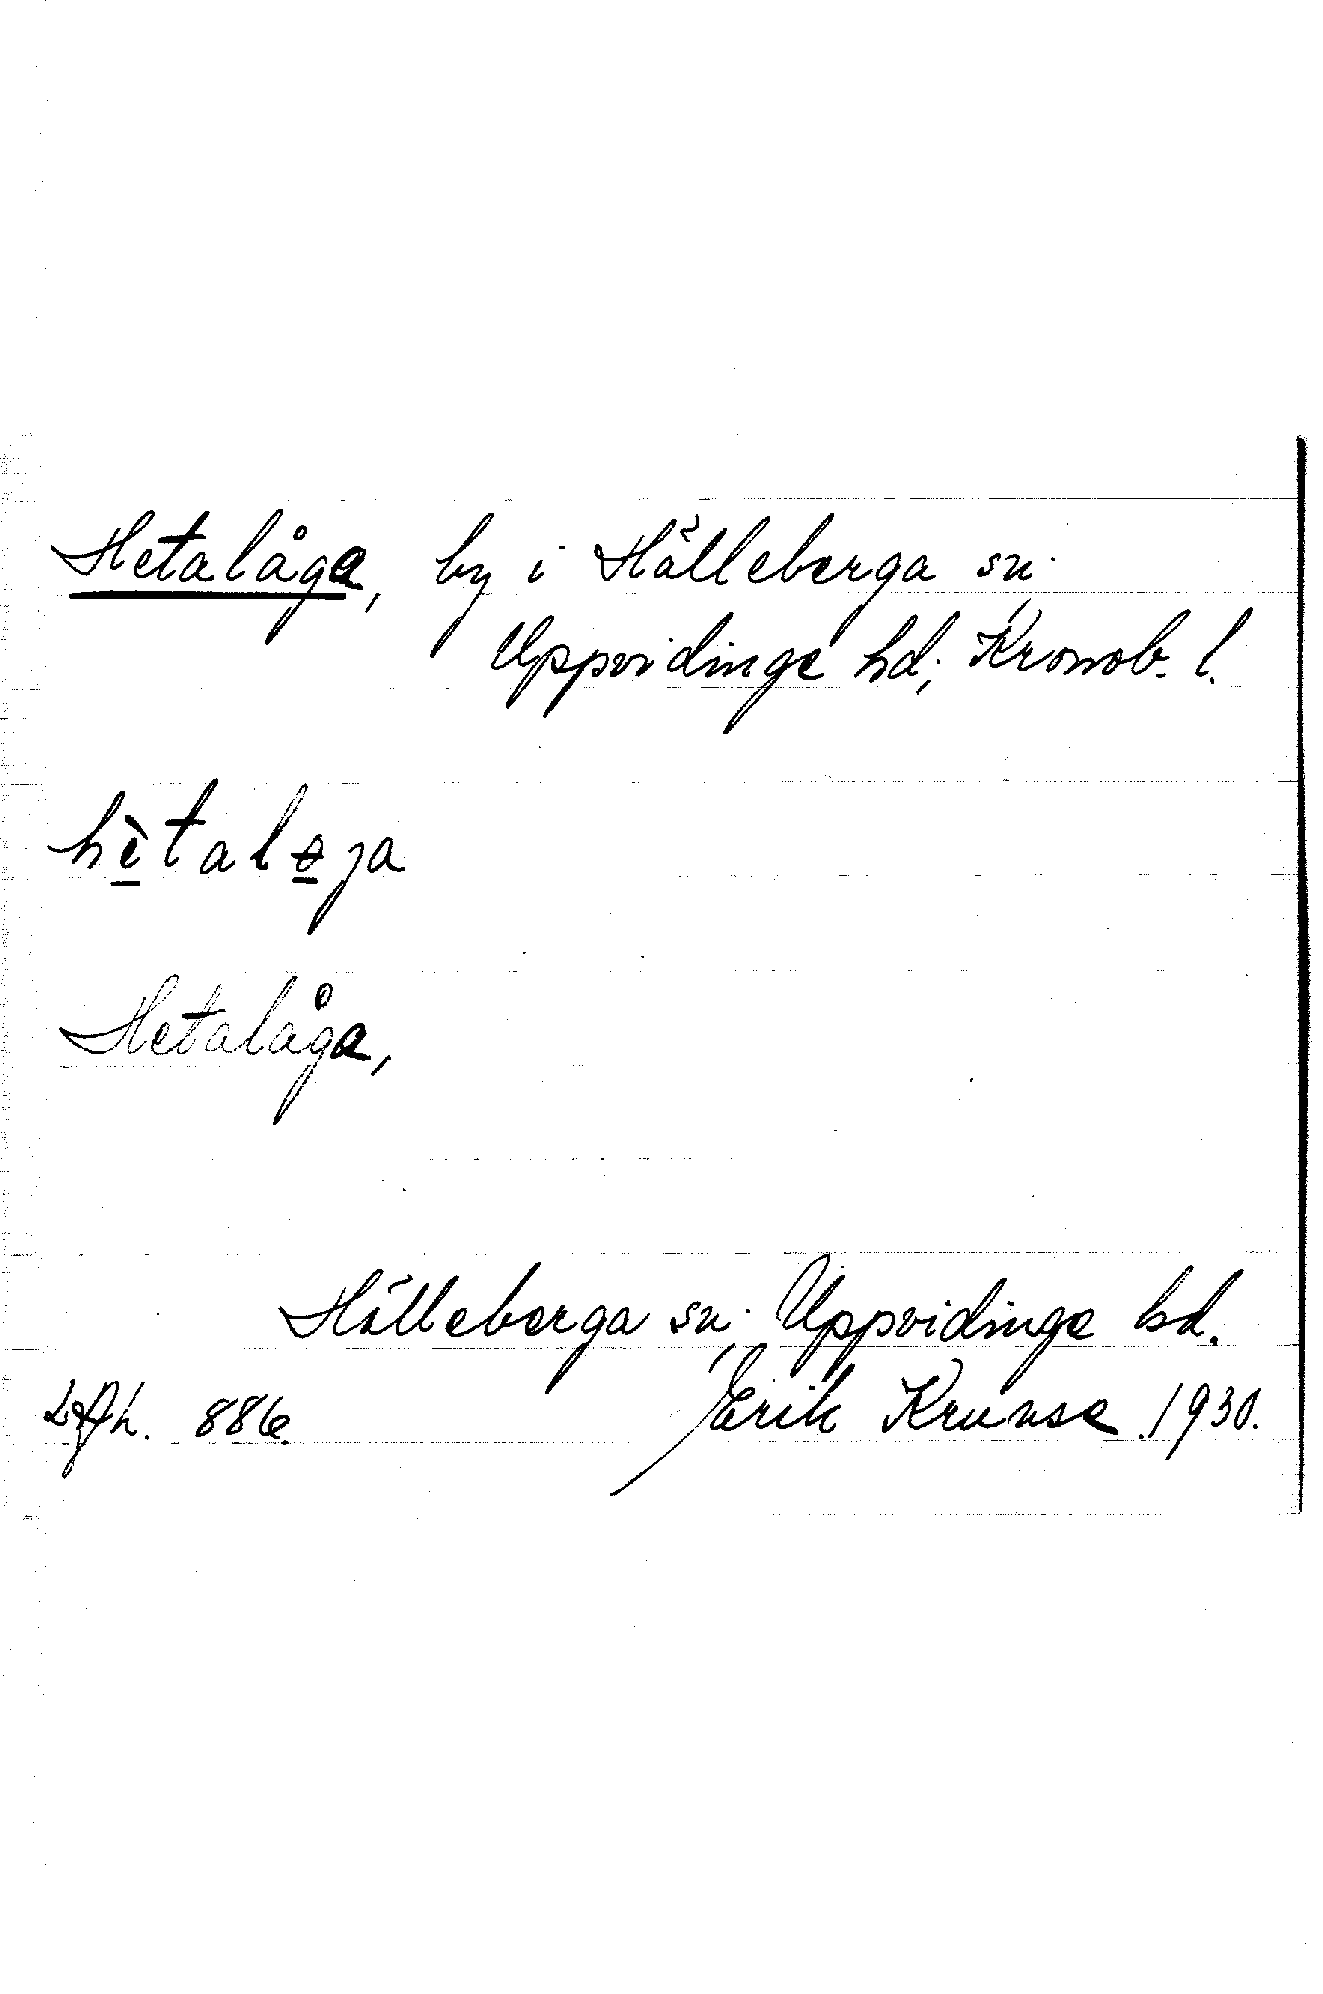 Hetalåga, by i Hälleberga sn.
Uppvidinge hd, Kronob. l.
hètaləja
Hetalåga,
Hälleberga sn, Uppvidinge hd.
886. Erik Kruuse 1930.